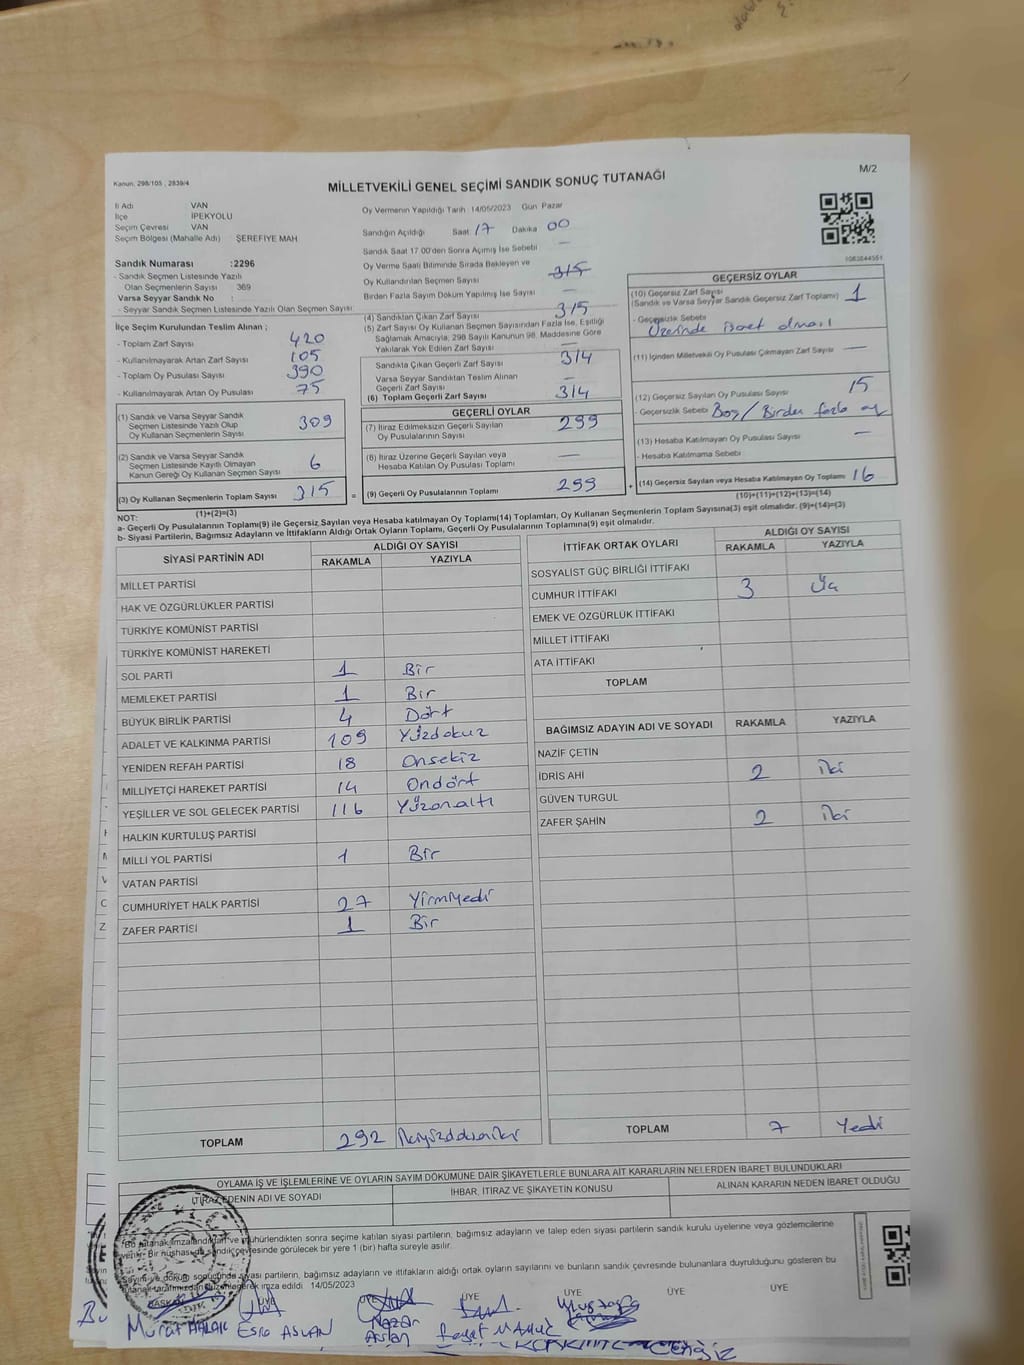 Kanun: 298/105 , 2839/4
MİLLETVEKİLİ GENEL SEÇİMİ SANDIK SONUÇ TUTANAĞI
M/2
İl Adı VAN
İlçe İPEKYOLU
Seçim Çevresi VAN
Seçim Bölgesi (Mahalle Adı) ŞEREFİYE MAH
Sandık Numarası :2296
- Sandık Seçmen Listesinde Yazılı
Olan Seçmenlerin Sayısı 369
Varsa Seyyar Sandık No :
- Seyyar Sandık Seçmen Listesinde Yazılı Olan Seçmen Sayısı
İlçe Seçim Kurulundan Teslim Alınan ;
- Toplam Zarf Sayısı 420
- Kullanılmayarak Artan Zarf Sayısı 105
- Toplam Oy Pusulası Sayısı 390
- Kullanılmayarak Artan Oy Pusulası 75
(1) Sandık ve Varsa Seyyar Sandık
Seçmen Listesinde Yazılı Olup
Oy Kullanan Seçmenlerin Sayısı 309
(2) Sandık ve Varsa Seyyar Sandık
Seçmen Listesinde Kayıtlı Olmayan
Kanun Gereği Oy Kullanan Seçmen Sayısı 6
(3) Oy Kullanan Seçmenlerin Toplam Sayısı 315
(1)+(2)=(3)
Oy Vermenin Yapıldığı Tarih 14/05/2023 Gün Pazar
Sandığın Açıldığı Saat 17 Dakika 00
Sandık Saat 17.00'den Sonra Açımış İse Sebebi —
Oy Verme Saati Bitiminde Sırada Bekleyen ve
Oy Kullandırılan Seçmen Sayısı 315
Birden Fazla Sayım Döküm Yapılmış İse Sayısı —
(4) Sandıktan Çıkan Zarf Sayısı 315
(5) Zarf Sayısı Oy Kullanan Seçmen Sayısından Fazla İse, Eşitliği
Sağlamak Amacıyla, 298 Sayılı Kanunun 98. Maddesine Göre
Yakılarak Yok Edilen Zarf Sayısı —
Sandıkta Çıkan Geçerli Zarf Sayısı 314
Varsa Seyyar Sandıktan Teslim Alınan
Geçerli Zarf Sayısı —
(6) Toplam Geçerli Zarf Sayısı 314
GEÇERLİ OYLAR
(7) İtiraz Edilmeksizin Geçerli Sayılan
Oy Pusulalarının Sayısı 299
(8) İtiraz Üzerine Geçerli Sayılan veya
Hesaba Katılan Oy Pusulası Toplamı —
= (9) Geçerli Oy Pusulalarının Toplamı 299 +
1083844551
GEÇERSİZ OYLAR
(10) Geçersiz Zarf Sayısı 1
(Sandık ve Varsa Seyyar Sandık Geçersiz Zarf Toplamı)
- Geçersizlik Sebebi
Üzerinde işaret olması
(11) İçinden Milletvekili Oy Pusulası Çıkmayan Zarf Sayısı —
(12) Geçersiz Sayılan Oy Pusulası Sayısı 15
- Geçersizlik Sebebi Boş/Birden fazla oy
(13) Hesaba Katılmayan Oy Pusulası Sayısı —
- Hesaba Katılmama Sebebi
(14) Geçersiz Sayılan veya Hesaba Katılmayan Oy Toplamı 16
(10)+(11)+(12)+(13)=(14)
NOT:
a- Geçerli Oy Pusulalarının Toplamı(9) ile Geçersiz Sayılan veya Hesaba katılmayan Oy Toplamı(14) Toplamları, Oy Kullanan Seçmenlerin Toplam Sayısına(3) eşit olmalıdır. (9)+(14)=(3)
b- Siyasi Partilerin, Bağımsız Adayların ve İttifakların Aldığı Ortak Oyların Toplamı, Geçerli Oy Pusulalarının Toplamına(9) eşit olmalıdır.
SİYASİ PARTİNİN ADI ALDIĞI OY SAYISI
RAKAMLA YAZIYLA
MİLLET PARTİSİ
HAK VE ÖZGÜRLÜKLER PARTİSİ
TÜRKİYE KOMÜNİST PARTİSİ
TÜRKİYE KOMÜNİST HAREKETİ
SOL PARTİ 1 Bir
MEMLEKET PARTİSİ 1 Bir
BÜYÜK BİRLİK PARTİSİ 4 Dört
ADALET VE KALKINMA PARTİSİ 109 Yüzdokuz
YENİDEN REFAH PARTİSİ 18 Onsekiz
MİLLİYETÇİ HAREKET PARTİSİ 14 Ondört
YEŞİLLER VE SOL GELECEK PARTİSİ 116 Yüzonaltı
HALKIN KURTULUŞ PARTİSİ
MİLLİ YOL PARTİSİ 1 Bir
VATAN PARTİSİ
CUMHURİYET HALK PARTİSİ 27 Yirmiyedi
ZAFER PARTİSİ 1 Bir
TOPLAM 292 İkiyüzdoksaniki
İTTİFAK ORTAK OYLARI ALDIĞI OY SAYISI
RAKAMLA YAZIYLA
SOSYALİST GÜÇ BİRLİĞİ İTTİFAKI
CUMHUR İTTİFAKI 3 Üç
EMEK VE ÖZGÜRLÜK İTTİFAKI
MİLLET İTTİFAKI
ATA İTTİFAKI
TOPLAM
BAĞIMSIZ ADAYIN ADI VE SOYADI RAKAMLA YAZIYLA
NAZİF ÇETİN
İDRİS AHİ 2 iki
GÜVEN TURGUL
ZAFER ŞAHİN 2 iki
TOPLAM 7 Yedi
OYLAMA İŞ VE İŞLEMLERİNE VE OYLARIN SAYIM DÖKÜMÜNE DAİR ŞİKAYETLERLE BUNLARA AİT KARARLARIN NELERDEN İBARET BULUNDUKLARI
İTİRAZ EDENİN ADI VE SOYADI İHBAR, İTİRAZ VE ŞİKAYETİN KONUSU ALINAN KARARIN NEDEN İBARET OLDUĞU
Bu tutanak imzalandıktan ve mühürlendikten sonra seçime katılan siyasi partilerin, bağımsız adayların ve talep eden siyasi partilerin sandık kurulu üyelerine veya gözlemcilerine
verilir. Bir nüshası da sandık çevresinde görülecek bir yere 1 (bir) hafta süreyle asılır.
Sayım ve döküm sonucunda siyasi partilerin, bağımsız adayların ve ittifakların aldığı ortak oyların sayılarını ve bunların sandık çevresinde bulunanlara duyrulduğunu gösteren bu
tutanak tarafımızdan düzenlenerek imza edildi. 14/05/2023
BAŞKAN ÜYE ÜYE ÜYE ÜYE ÜYE ÜYE
Murat Esra ASLAN Nazar Aslan
Cengiz